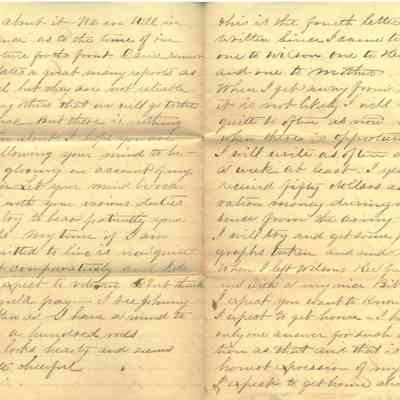 about it We are still in
as to the time of our
for the front
a great many reports as
but they are not reliable
others that we will go to the
But there is nothing
about I hope you
allowing your mind to be
gloomy on account of my
Let your mind be
with your various duties
try to bear patiently your
My time if I am
permitted to live is now quite
comparatively and
expect to return
pay I see Johnny
as I have a mind to
a hundred rods
looks hearty and seems
cheerful
this is the fourth letter
written since I came to
one to Wilson one to
and one to mother
When I get away from
it is not likely I will
quite so often as now
when there is opportun
I will write as often
a week at least I
received fifty dollars
money
since from the army
I will try and get some
graphs taken and send
When I left Wilsons
me with a very nice Bib
I expect you want to know
I expect to get home I
only one answer for such
tion as that and that is
honest expression of my
I expect to get home